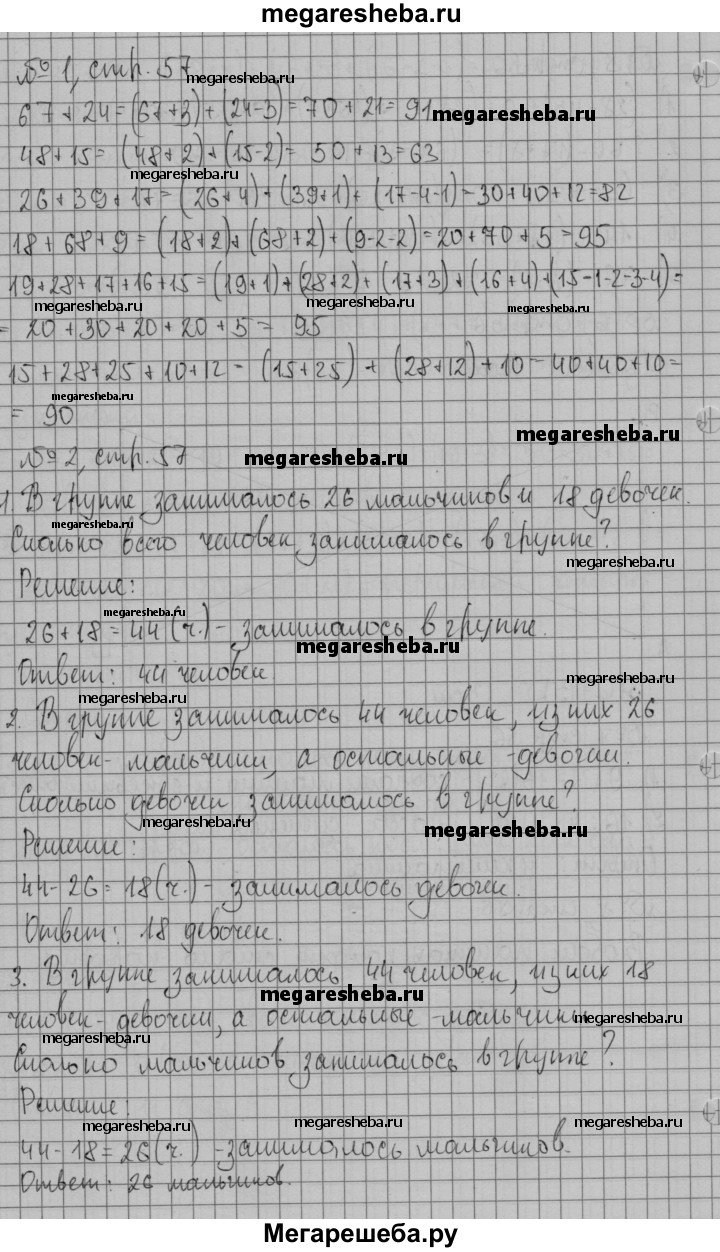 megaresheba.ru
№ 1, стр. 57
megaresheba.ru
67 + 24 = (67+3) + (24-3) = 70 + 21 = 91
megaresheba.ru
48 + 15 = (48+2) + (15-2) = 50 + 13 = 63
megaresheba.ru
26 + 39 + 17 = (26+4) + (39+1) + (17-4-1) = 30+40+12=82
18 + 68 + 9 = (18+2) + (68+2) + (9-2-2) = 20+70+5 = 95
megaresheba.ru
19+28+17+16+15 = (19+1) + (28+2) + (17+3) + (16+4) + (15-1-2-3-4) =
megaresheba.ru megaresheba.ru megaresheba.ru
= 20 + 30 + 20 + 20 + 5 = 95
15 + 28 + 25 + 10 + 12 = (15+25) + (28+12) + 10 = 40+40+10 =
megaresheba.ru
= 90
megaresheba.ru
№ 2, стр. 57
megaresheba.ru
1. В группе занималось 26 мальчиков и 18 девочек.
megaresheba.ru
Сколько всего человек занималось в группе?
megaresheba.ru
Решение:
megaresheba.ru
26 + 18 = 44 (ч.) - занималось в группе.
megaresheba.ru
Ответ: 44 человек
megaresheba.ru
megaresheba.ru
2. В группе занималось 44 человек, из них 26
человек - мальчики, а остальные - девочки.
Сколько девочек занималось в группе?
megaresheba.ru
megaresheba.ru
Решение:
44 - 26 = 18 (ч.) - занималось девочек.
Ответ: 18 девочек.
3. В группе занималось 44 человек, из них 18
megaresheba.ru
человек - девочки, а остальные - мальчики.
megaresheba.ru megaresheba.ru
Сколько мальчиков занималось в группе?
Решение:
megaresheba.ru megaresheba.ru megaresheba.ru
44 - 18 = 26 (ч.) - занималось мальчиков.
Ответ: 26 мальчиков.
Мегарешеба.ру